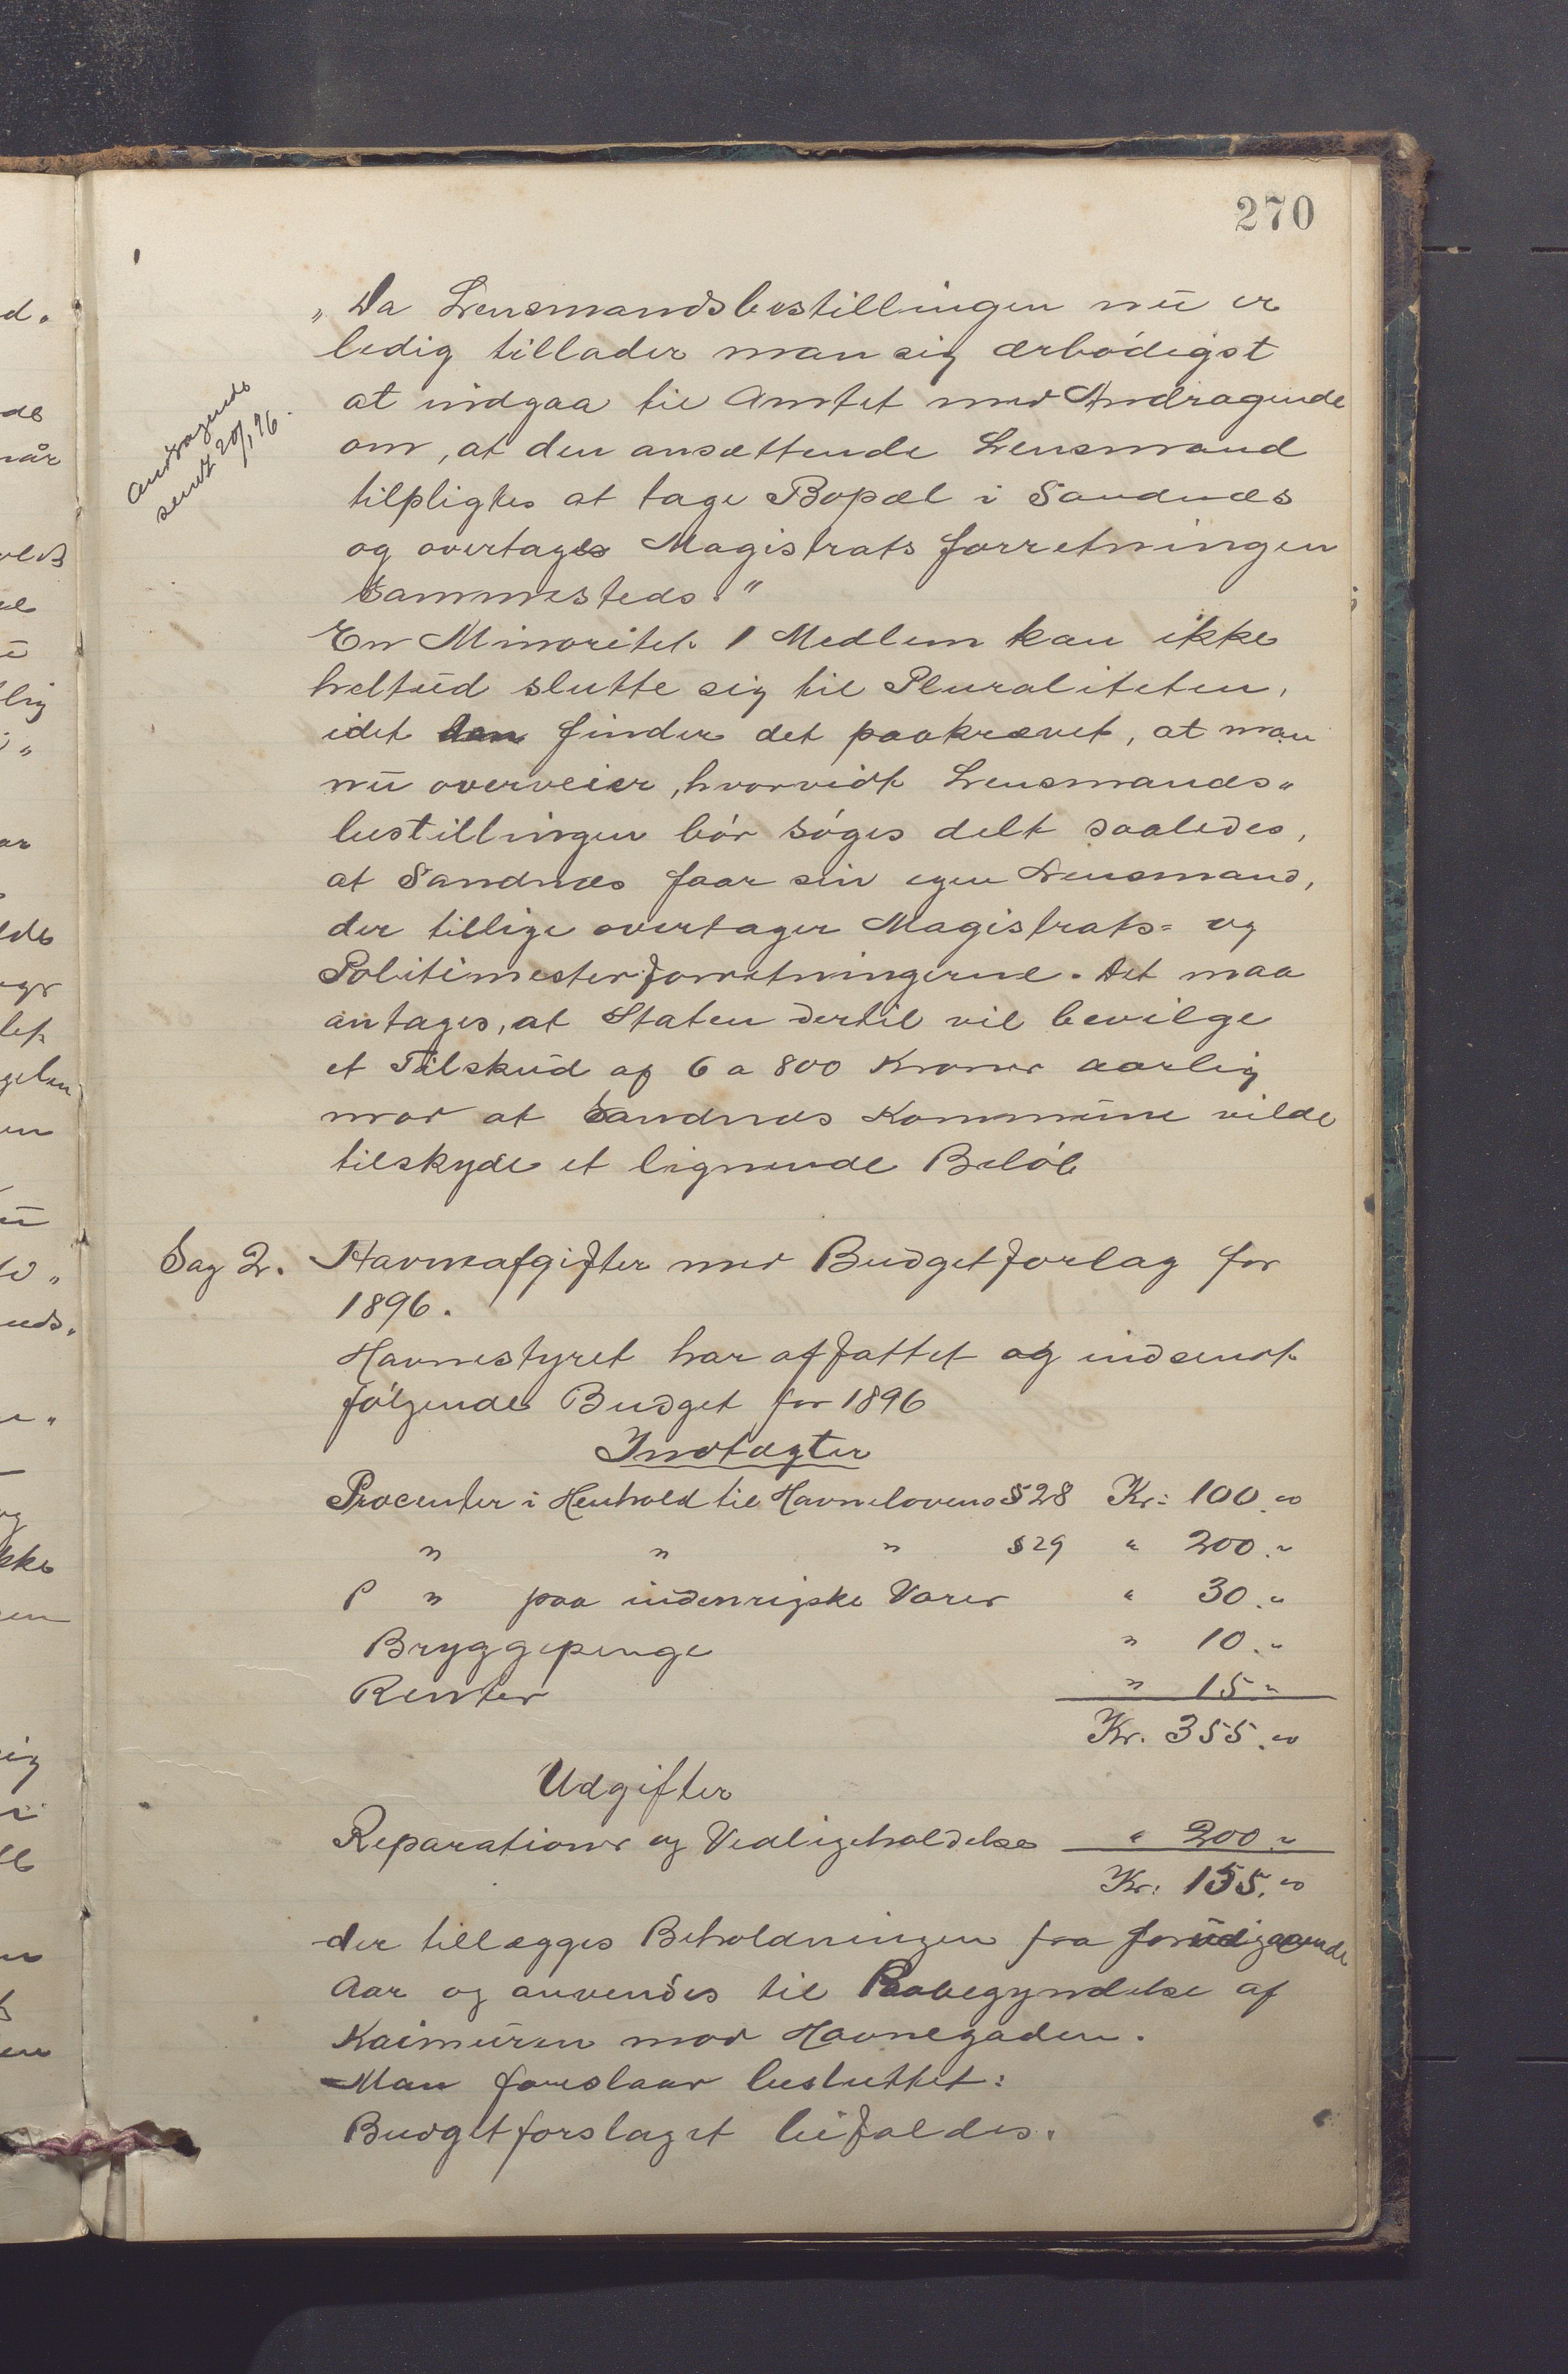 270
„Da Lensmandsbestillingen nu er
ledig tillader man sig ærbödigst
at indgaa til Amtet med Andragende
om, at den ansættende Lensmand
tilpligtes at tage Bopæl i Sandnæs
og overtages Magistrats forretningen
sammesteds."
Andragende
sendt 20/1 96.
En Minoritet 1 Medlem kan ikke
heltud slutte sig til Pluraliteten,
idet den finder det paakrævet, at man
nu overveier, hvorvidt Lensmands„
bestillingen bör söges delt saaledes,
at Sandnæs faar sin egen Lensmand,
der tillige overtager Magistrats= og
Politimesterforretningerne. Det maa
antages, at Staten dertil vil bevilge
et Tilskud af 6 a 800 Kroner aarlig
mod at Sandnæs Kommune vilde
tilskyde et lignende Belöb
Sag 2. Havneafgifter med Budgetforlag for
1896.
Havnestyret har affattet og indsendt
fölgende Budget for 1896
Indtægter
Procenter i Henhold til Havnelovens § 28 Kr: 100.00
" " " § 29 " 200.-
P " paa indenrigske Varer " 30.-
Bryggepenge " 10.-
Renter " 15-
Kr. 355.00
Udgifter
Reparationer og Vedligeholdelse " 200.-
Kr: 155.00
der tillægges Beholdningen fra forudigaaende
Aar og anvendes til Paabegyndelse af
Kaimuren mod Havnegaden.
Man foreslaar besluttet:
Budgetforslaget bifaldes.